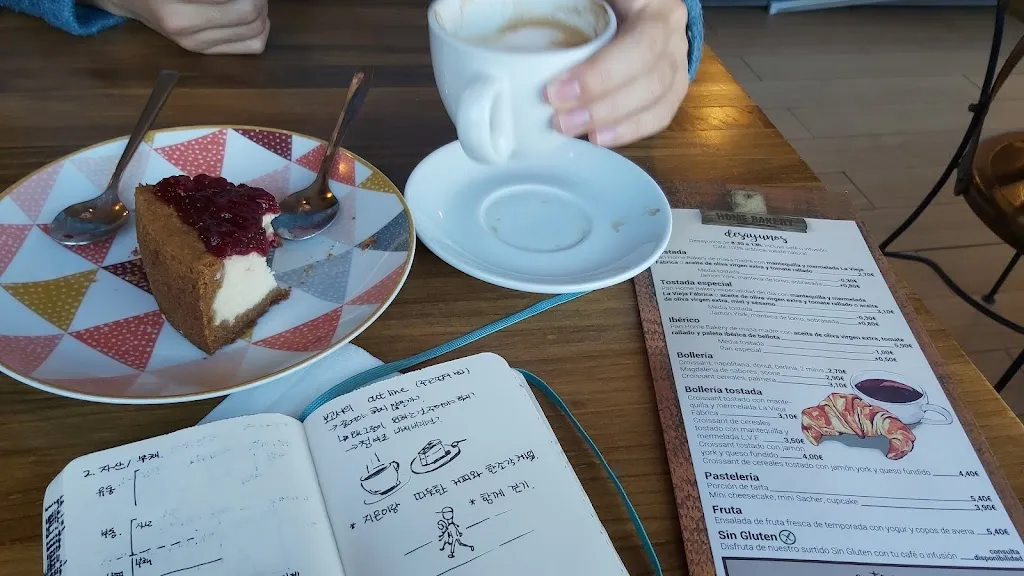 HOME BAKERY
desayunos
Desayunos de 8:30 a 13h. Incluye café o infusión.
Café 100% arábica natural
Tostada
Pan Home Bakery de masa madre con mantequilla y mermelada La Vieja
Fábrica o aceite de oliva virgen extra y tomate rallado
Media tostada 2,70€
Jamón York, manteca de lomo, sobrasada +0,80€
Tostada especial
Pan Home Bakery especialidad del día con mantequilla y mermelada
La Vieja Fábrica o aceite de oliva virgen extra y tomate rallado o aceite
de oliva virgen extra, miel y sésamo
Media tostada 3,10€
Jamón York, manteca de lomo, sobrasada +0,80€
Ibérico
Pan Home Bakery de masa madre con aceite de oliva virgen extra, tomate
rallado y paleta ibérica de bellota 5,90€
Media tostada -1,00€
Pan especial +0,50€
Bollería
Croissant, napolitana, donut, berlina, 2 minis 2,70€
Magdalena de sabores, scone 2,90€
Croissant cereales, palmera 3,10€
Bollería tostada
Croissant tostado con mante-
quilla y mermelada La Vieja
Fábrica 3,10€
Croissant de cereales
tostado con mantequilla y
mermelada L.V.F. 3,50€
Croissant tostado con jamón
york y queso fundido 4,00€
Croissant de cereales tostado con jamón york y queso fundido 4,40€
Pastelería
Porción de tarta 5,40€
Mini cheesecake, mini Sacher, cupcake 3,90€
Fruta
Ensalada de fruta fresca de temporada con yogur y copos de avena 5,40€
Sin Gluten
Disfruta de nuestro surtido Sin Gluten con tu café o infusión consulta
disponibilidad
outline
따뜻한 커피와
* 지은이랑
* 함께 걷기.
2. 자산 / 부채
유동
부동
자산
부채